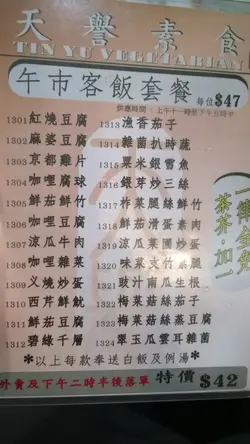 天譽素食
TIN YU VEGETARIAN
午市客飯套餐 每位$47
供應時間：上午十一時至下午五時半
1301 紅燒豆腐
1302 麻婆豆腐
1303 京都雞片
1304 咖喱腐球
1305 鮮茄鮮竹
1306 咖喱雜菜
1307 涼瓜牛肉
1308
1309 義燒炒蛋
1310 西芹鮮魷
1311 鮮茄豆腐
1312 碧綠千層
1313 漁香茄子
1314 雜菌扒時蔬
1315 粟米銀雪魚
1316 銀芽炒三絲
1317 炸菜腿絲鮮竹
1318 鮮茄滑蛋素肉
1319 涼瓜菜圃炒蛋
1320 味菜支竹素腩
1321 豉汁南瓜生根
1322 梅菜菇絲茄子
1323 梅菜菇絲蒸豆腐
1324 翠玉瓜雲耳雜菌
*以上每款奉送白飯及例湯*
外賣及下午二時半後落單 特價 $42
茶芥·加一